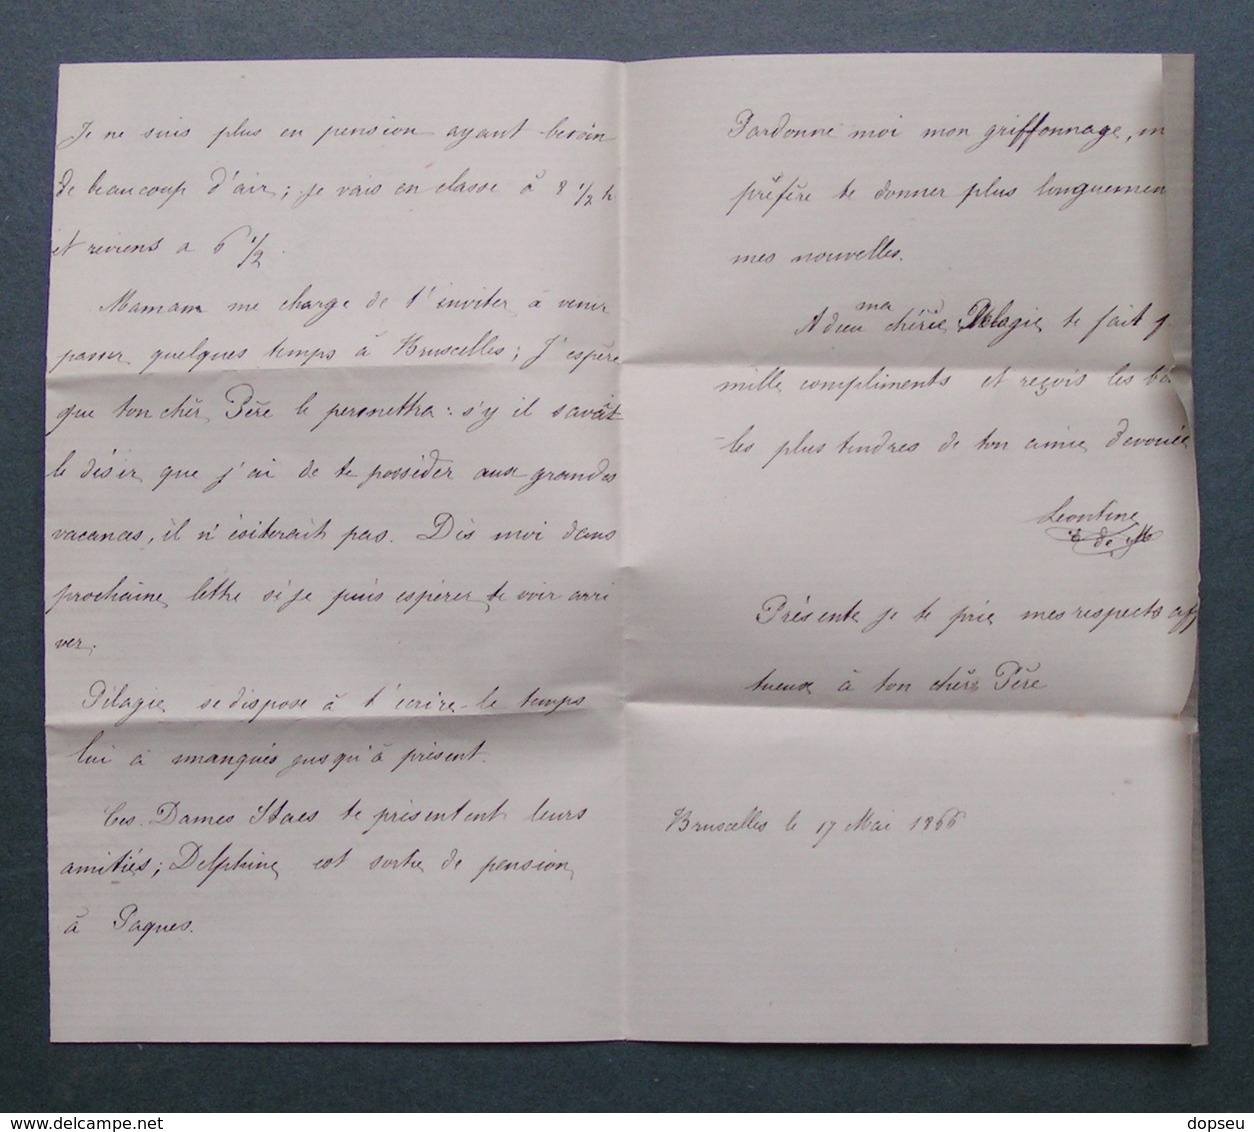 Je ne suis plus en pension ayant besoin
de beaucoup d'air; je vais en classe à 8 1/2 h
et reviens a 6 1/2.
Maman me charge de t'inviter à venir
passer quelques temps à Bruxelles; J'espère
que ton chèr Père le permettra: s'y il savait
le désir que j'ai de te posséder aux grandes
vacances, il n'ésiterait pas. Dis moi dans
prochaine lettre si je puis espérer te voir arri
ver.
Pélagie se dispose à t'écrire - le temps
lui à manqués jusqu'à présent.
Ces Dames Staes te présentent leurs
amitiés; Delphine est sortie de pension
à Paques.
Pardonne moi mon griffonnage,
préfère te donner plus longuemen
mes nouvelles.
Adieu ma chérie Pelagie te fait
mille compliments et reçois les ba
les plus tendres de ton amie devouée
Leontine
de M
Présente je te prie mes respects aff
tueux à ton chèr Père
Bruxelles le 17 Mai 1866
dopseu